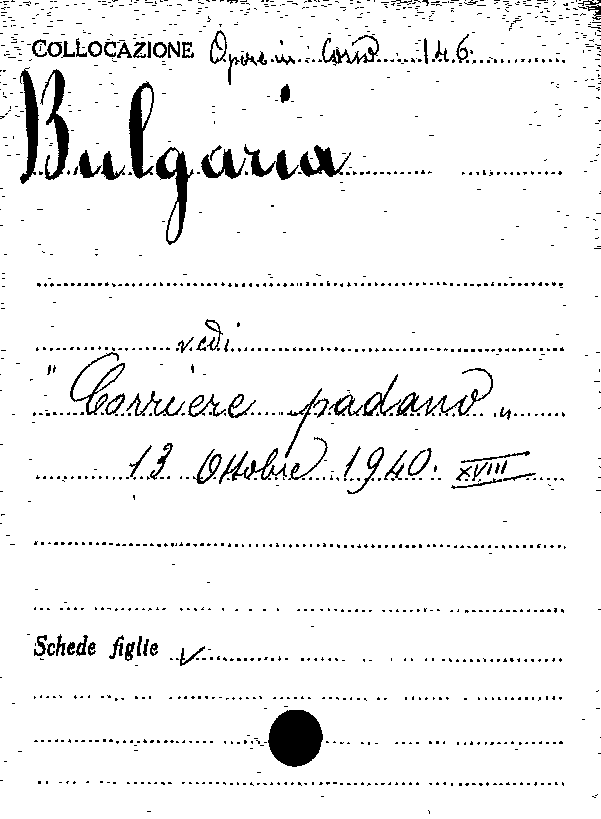 COLLOCAZIONE Opere in Corso 146.
Bulgaria
vedi
"Corriere padano"
13 Ottobre 1940. XVIII
Schede figlie ✓